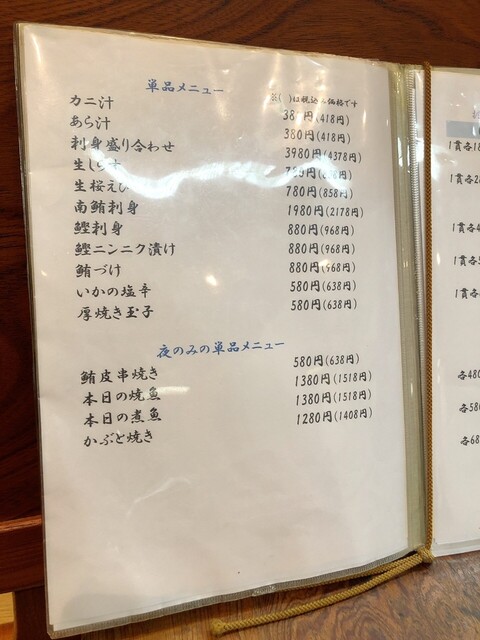 単品メニュー
※( )は税込み価格です
カニ汁 380円(418円)
あら汁 380円(418円)
刺身盛り合わせ 3980円(4378円)
生しらす
生桜えび 780円(858円)
南鮪刺身 1980円(2178円)
鰹刺身 880円(968円)
鰹ニンニク漬け 880円(968円)
鮪づけ 880円(968円)
いかの塩辛 580円(638円)
厚焼き玉子 580円(638円)
夜のみの単品メニュー
鮪皮串焼き 580円(638円)
本日の焼魚 1380円(1518円)
本日の煮魚 1380円(1518円)
かぶと焼き 1280円(1408円)
1貫各
1貫各
1貫各
1貫各
1貫各
各480
各580
各68